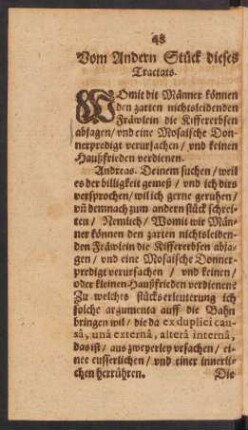 48
Vom Andern Stück dieses
Tractats.
WOmit die Männer können
den zarten nichtsleidenden
Fräwlein die Kiffererbsen
absagen / vnd eine Mosaische Don-
nerpredigt verursachen / vnd keinen
Haußfrieden verdienen.
Andreas. Deinem suchen / weil
es der billigkeit gemeß / vnd ich dirs
versprochen / wil ich gerne geruhen /
vñ demnach zum andern stück schrei-
ten / Nemlich / Womit wir Män-
ner können den zarten nichtsleiden-
den Fräwlein die Kiffererbsen absa-
gen / vnd eine Mosaische Donner-
predigt verursachen / vnd keinen /
oder kleinen Haußfrieden verdienen?
Zu welches stücks erleuterung ich
solche argumenta auff die Bahn
bringen wil / die da ex duplici cau-
sâ, unâ externâ, alterâ internâ,
das ist / aus zweyerley vrsachen / ei-
ner eusserlichen / vnd einer innerli-
chen herrühren.
Die